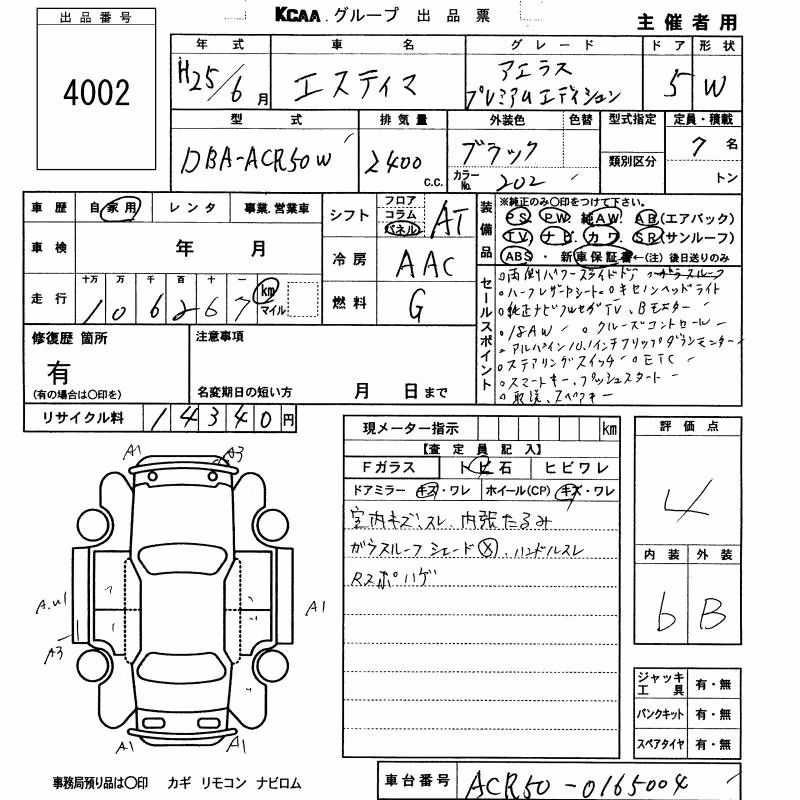 KCAA グループ 出品票
主催者用
出品番号
4002
年式 車名 グレード ドア 形状
H25/6月 エスティマ アエラス プレミアムエディション 5 W
型式 排気量 外装色 色替 型式指定 定員・積載
DBA-ACR50W 2400 c.c. ブラック 類別区分 7名
カラーNo. 202 トン
車歴 自家用 レンタ 事業、営業車
車検 年 月
走行 十万 万 千 百 十 一
106267 km マイル
シフト フロア コラム パネル AT
冷房 AAC
燃料 G
装備品
※純正のみ○印をつけて下さい。
PS PW 純AW. AB(エアバック)
TV ナビ カワ SR(サンルーフ)
ABS・新車保証書←(注)後日送りのみ
セールスポイント
○両側パワースライドドア ○ガラスルーフ
○ハーフレザーシート ○キセノンヘッドライト
○純正ナビフルセグTV、Bモニター
○18AW ○クルーズコントロール
○アルパイン10.1インチフリップダウンモニター
○ステアリングスイッチ ○ETC
○スマートキー、プッシュスタート
○取説、スペアキー
修復歴 箇所
有
(有の場合は○印を)
注意事項
名変期日の短い方 月 日まで
リサイクル料 14340円
現メーター指示 km
【査定員記入】
Fガラス トビ石 ヒビワレ
ドアミラー キズ・ワレ ホイール(CP) キズ・ワレ
室内キズ、スレ、内張たるみ
ガラスルーフシェードⓧ、ハンドルスレ
Rスポハゲ
評価点
4
内装 外装
b B
ジャッキ工具 有・無
パンクキット 有・無
スペアタイヤ 有・無
A1 A3
A.U1 A1
A3
A1 A1
事務局預り品は○印 カギ リモコン ナビロム
車台番号 ACR50-0165004